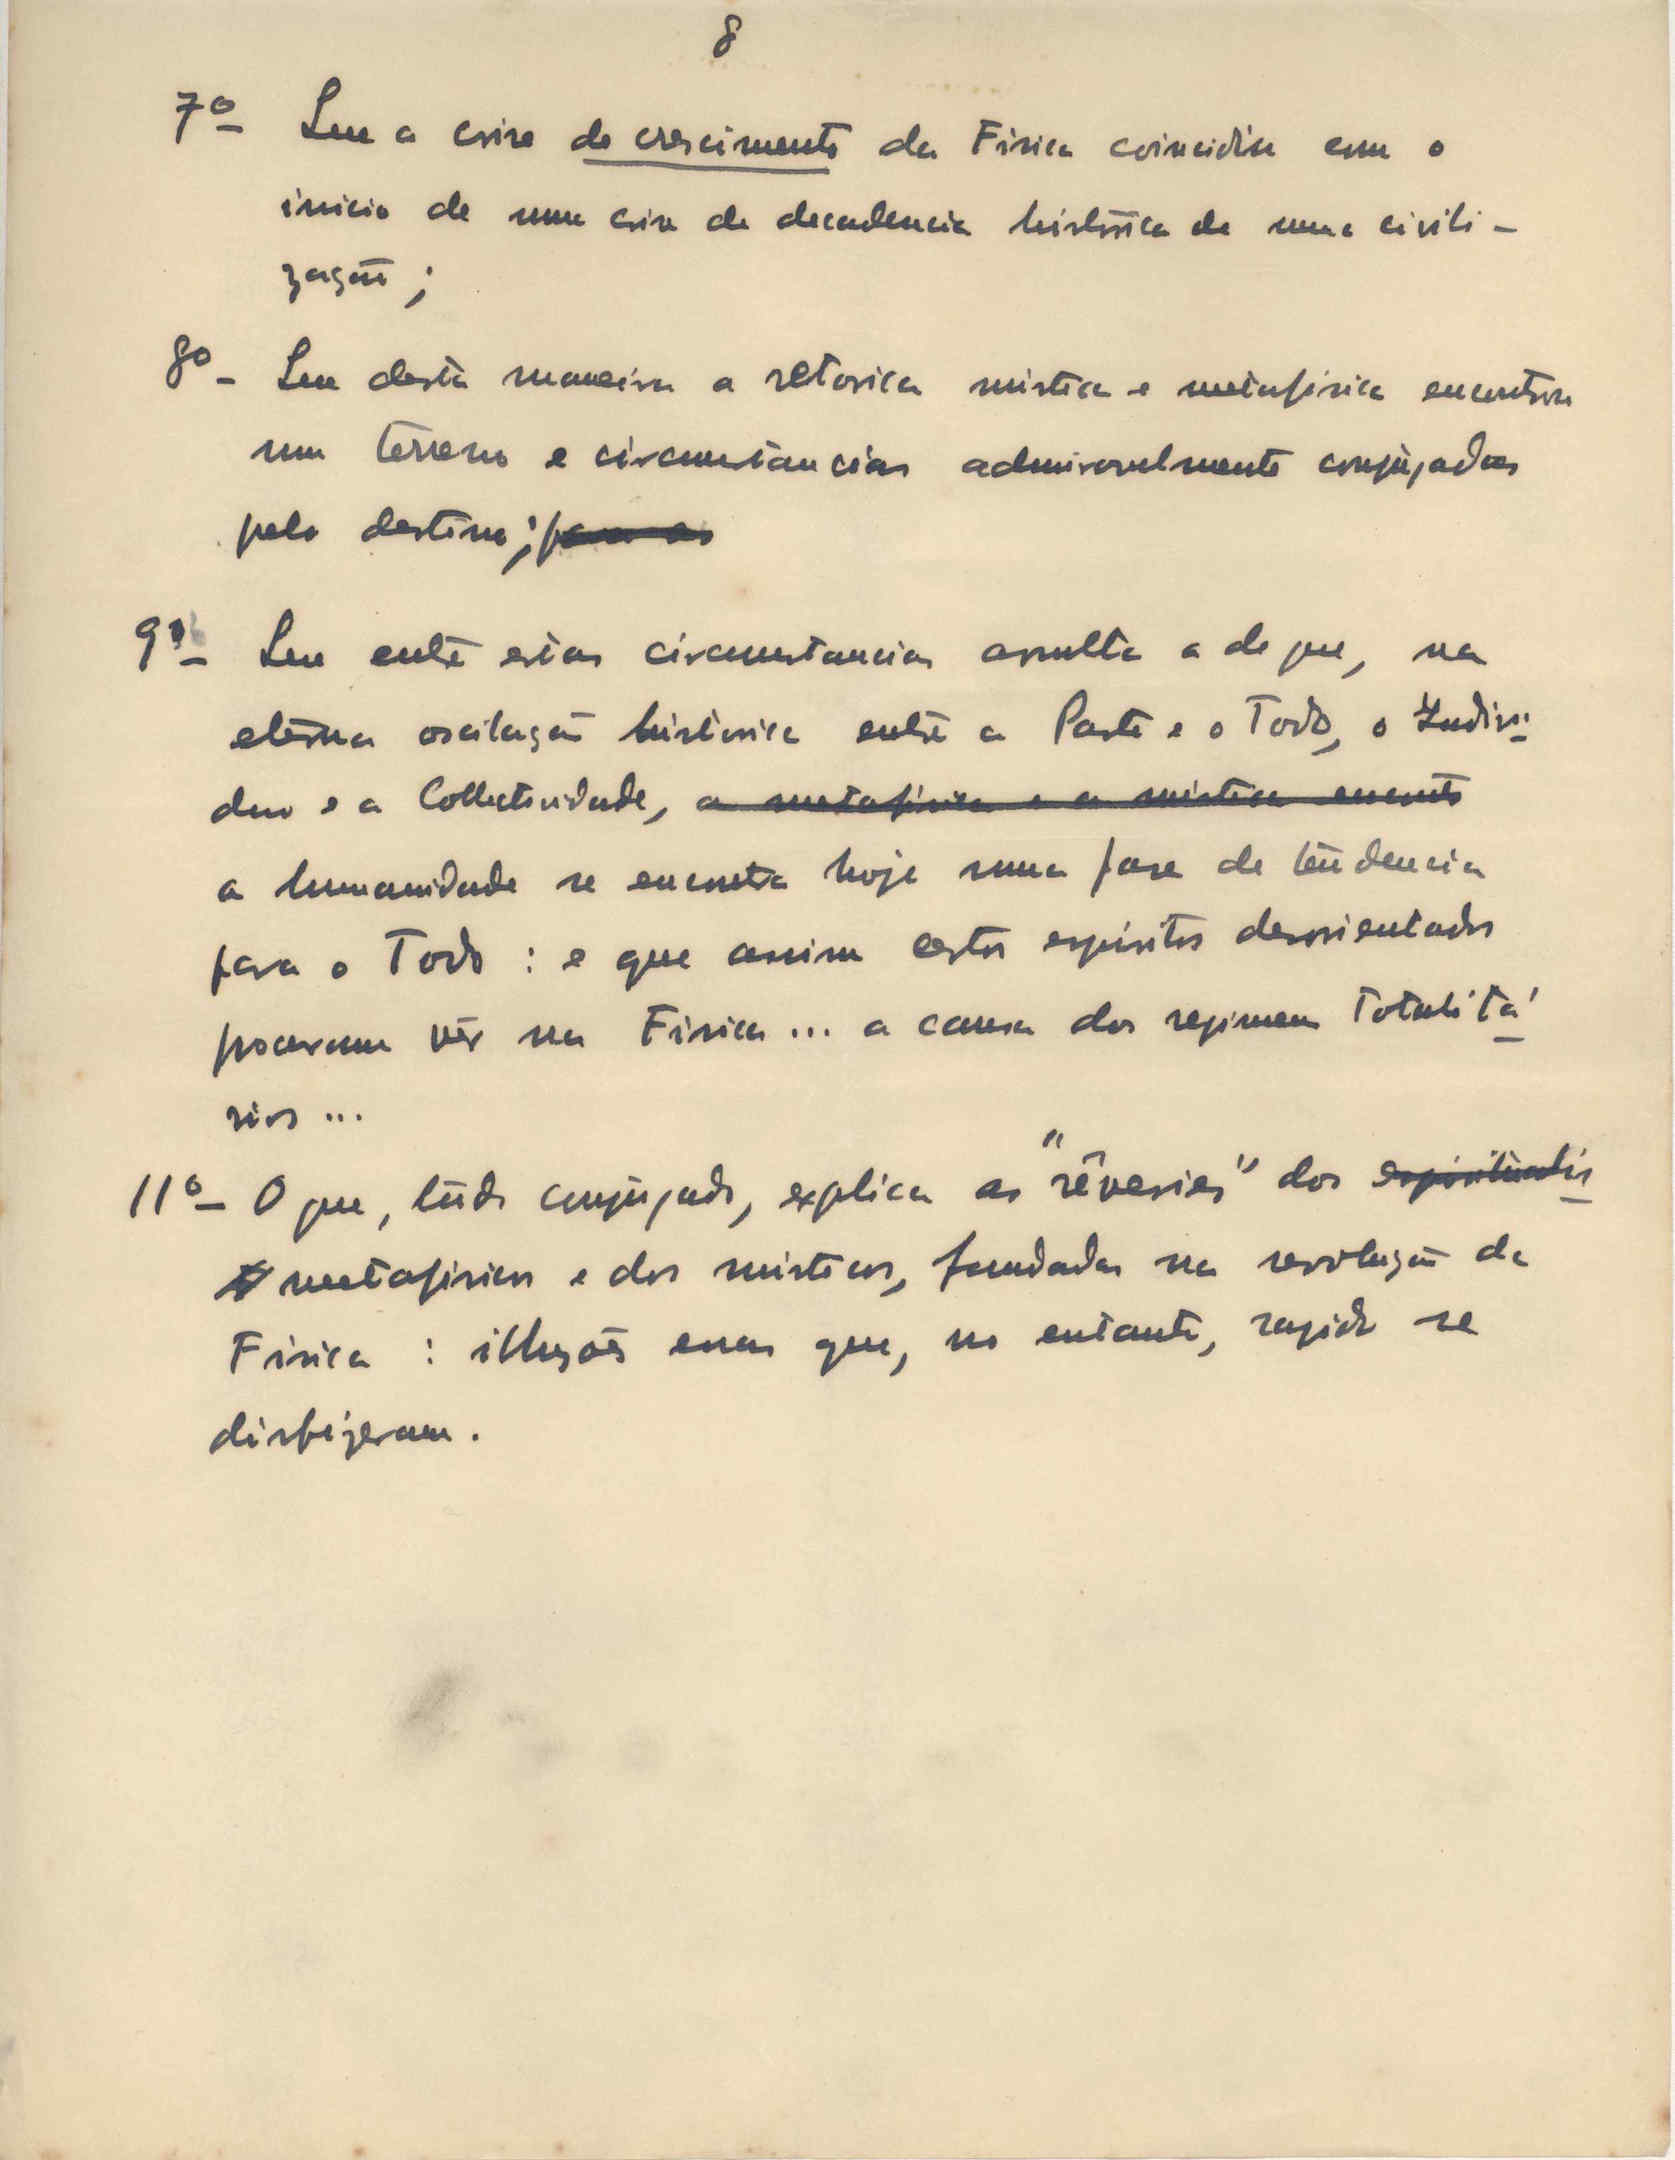 8
7º - Que a crise de crescimento da Fisica coincidiu com o
inicio de uma crise de decadencia histórica de uma civili-
zação;
8º - Que desta maneira a retorica mistica e metafisica encontrou
um terreno e circunstancias admiravelmente conjugadas
pelo destino; para as
9º - Que entre estas circunstancias avulta a de que, na
eterna oscilação histórica entre a Parte e o Todo, o Indiví-
duo e a Collectividade, a metafisica e a mistica encontr
a humanidade se encontra hoje numa fase de tendencia
para o Todo : e que assim certos espiritos desorientados
procuram vêr na Fisica ... a causa dos regimens Totalitá-
rios ...
11º - O que, tudo conjugado, explica as "rêveries" dos espiritualis-
metafisicos e dos misticos, fundadas na revolução da
Fisica : illusões essas que, no entanto, rapido se
disfizeram.